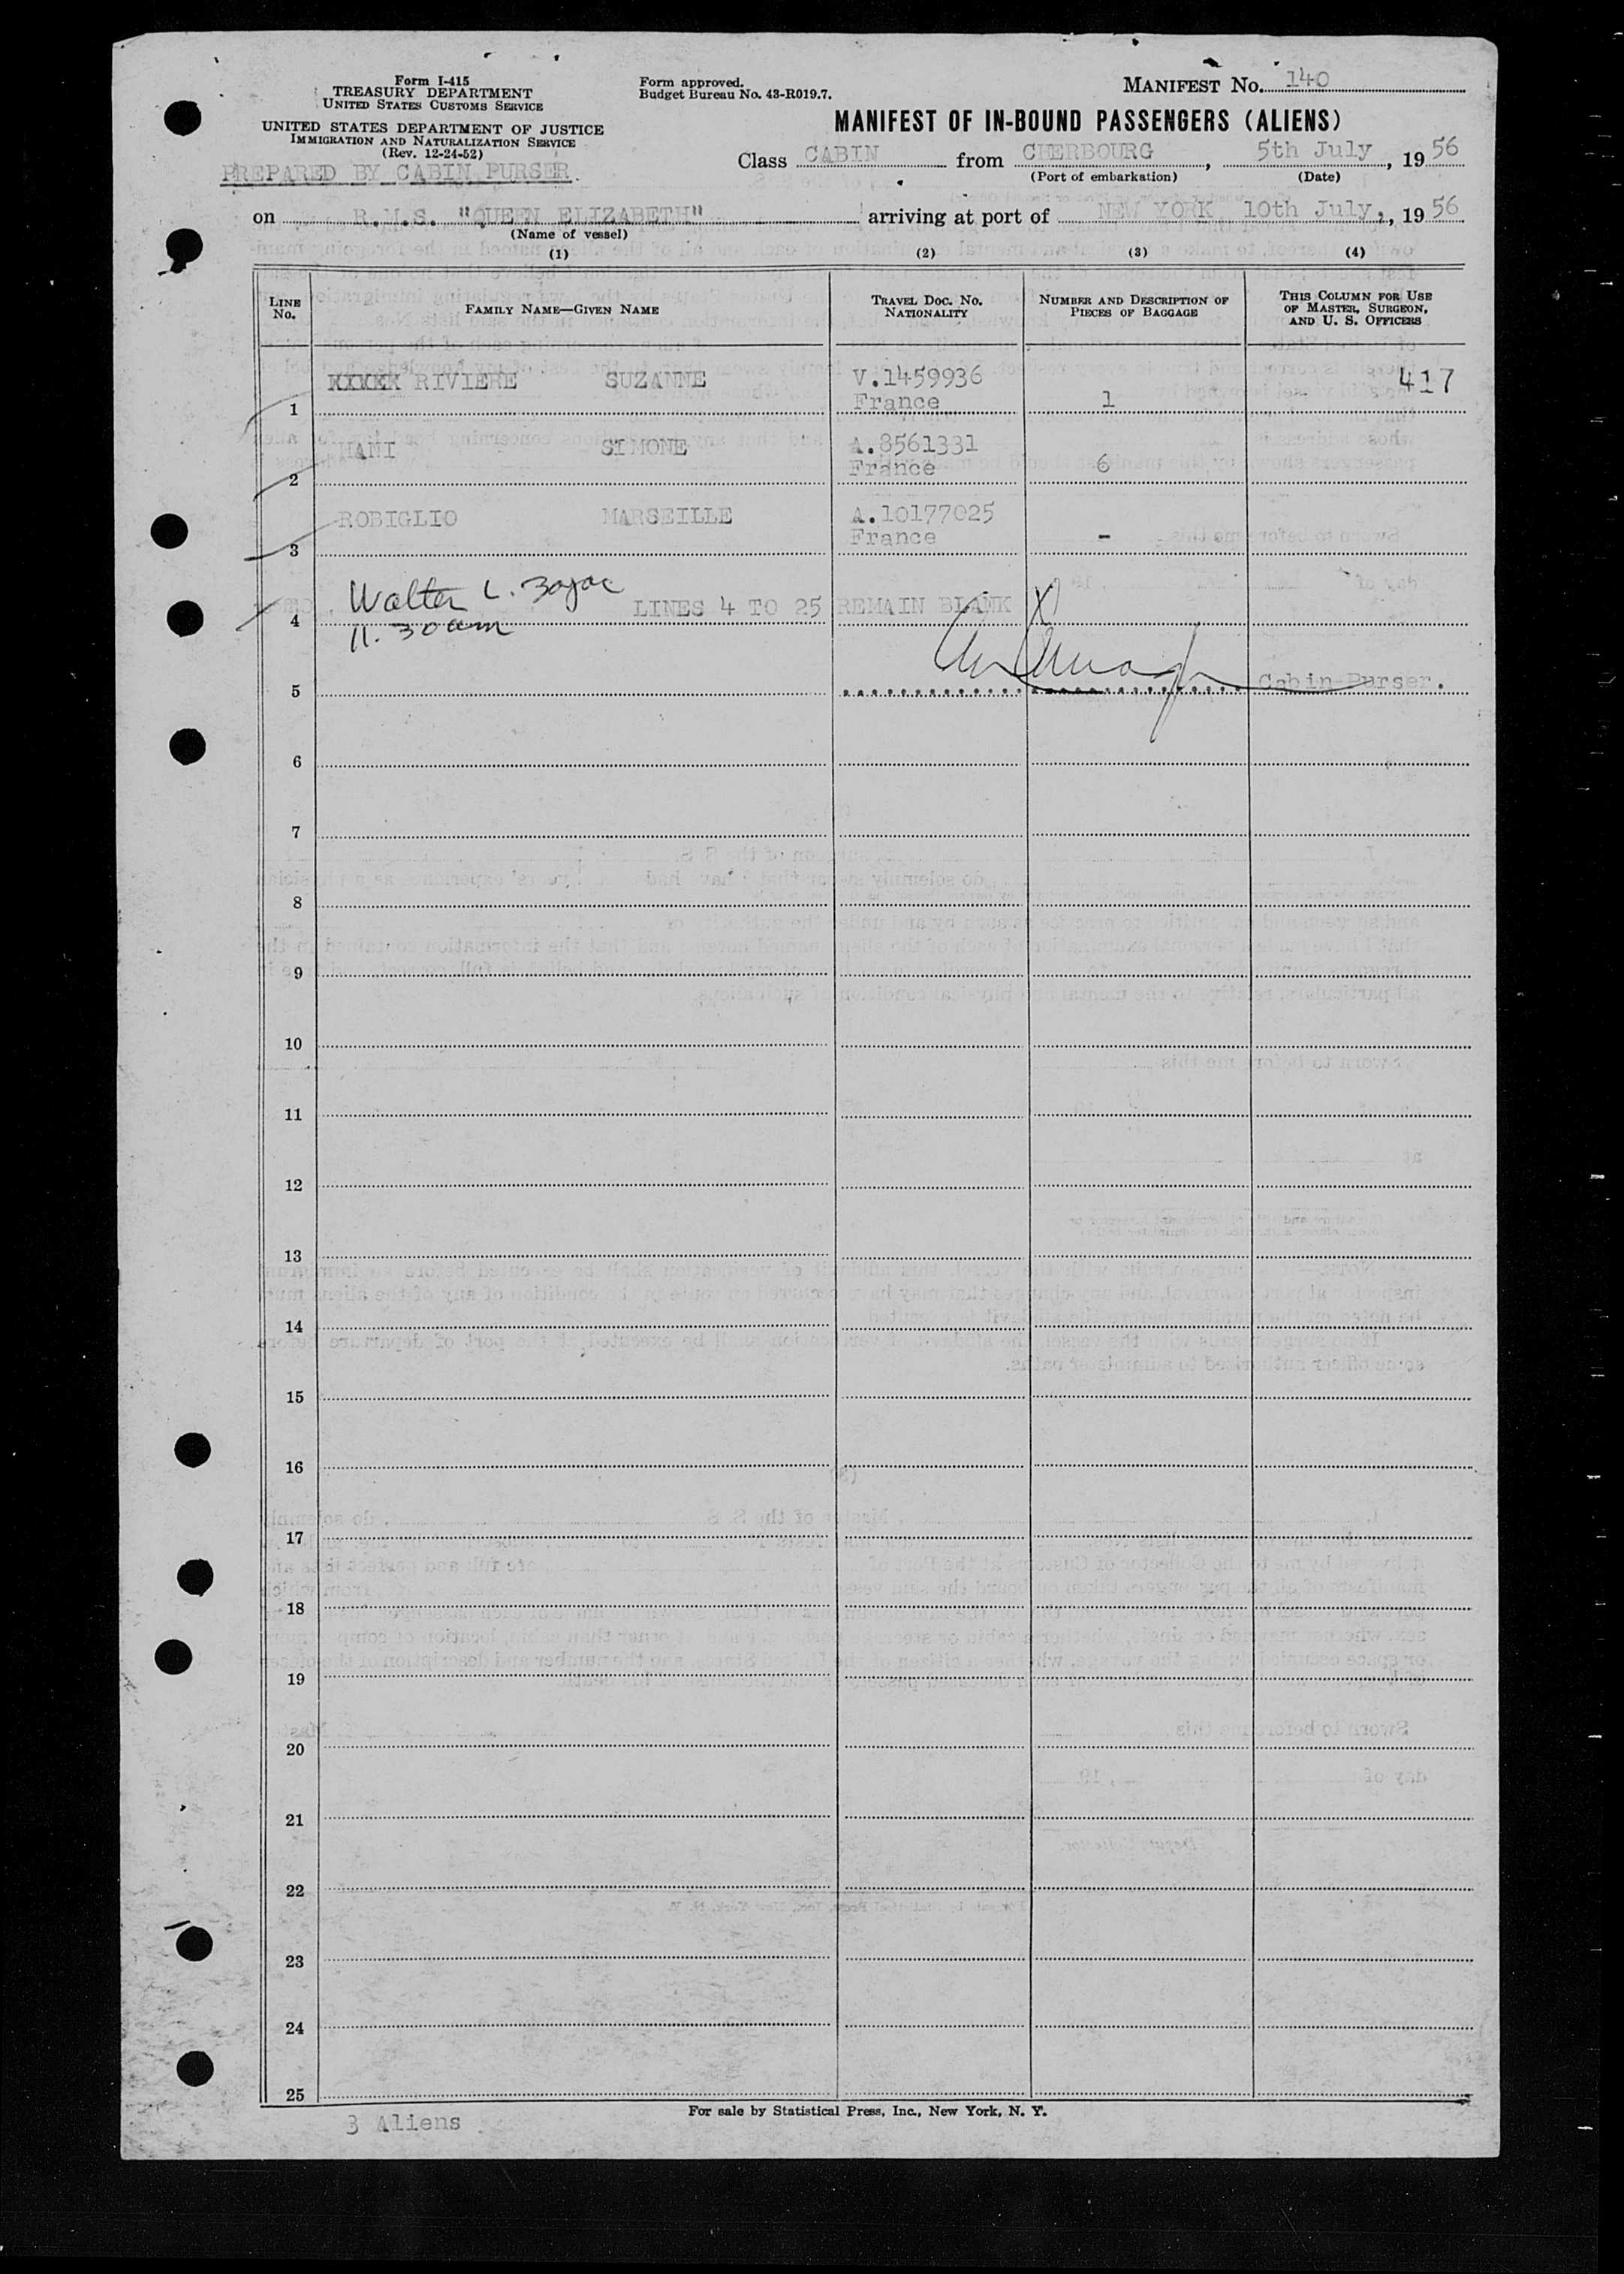 Form I-415
TREASURY DEPARTMENT
UNITED STATES CUSTOMS SERVICE
UNITED STATES DEPARTMENT OF JUSTICE
IMMIGRATION AND NATURALIZATION SERVICE
(Rev. 12-24-52)
PREPARED BY CABIN PURSER.
Form approved.
Budget Bureau No. 43-R019.7.
MANIFEST NO. 140
MANIFEST OF IN-BOUND PASSENGERS (ALIENS)
Class CABIN from CHERBOURG, 5th July, 1956
(Port of embarkation) (Date)
on R.M.S. "QUEEN ELIZABETH" arriving at port of NEW YORK, 10th July, 1956
(Name of vessel)
(1) (2) (3) (4)
LINE NO. FAMILY NAME—GIVEN NAME TRAVEL DOC. NO. NATIONALITY NUMBER AND DESCRIPTION OF PIECES OF BAGGAGE THIS COLUMN FOR USE OF MASTER, SURGEON, AND U. S. OFFICERS
RIVIERE SUZANNE V.1459936 417
1 France 1
HANI SIMONE A.8561331
2 France 6
ROBIGLIO MARSEILLE A.10177025
3 France -
Walter L.
4 LINES 4 TO 25 REMAIN BLANK
11.30am
5 Cabin Purser.
6
7
8
9
10
11
12
13
14
15
16
17
18
19
20
21
22
23
24
25
3 Aliens
For sale by Statistical Press, Inc., New York, N. Y.